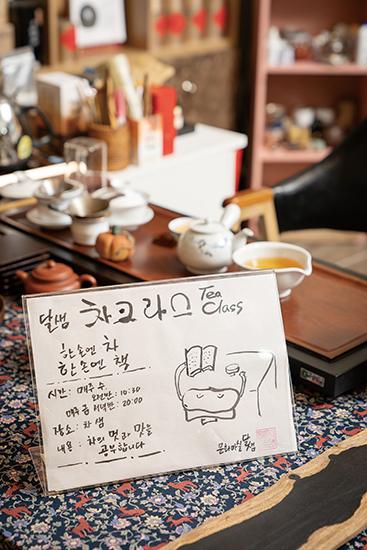 달샘 차크라스 Tea Class
한손엔 차
한손엔 책
시간 : 매주 수
오전반 : 10:30
매주 금 저녁반 : 20:00
장소 : 차샘
내용 : 차의 멋과 맛을
공부합니다
문화마실 달샘